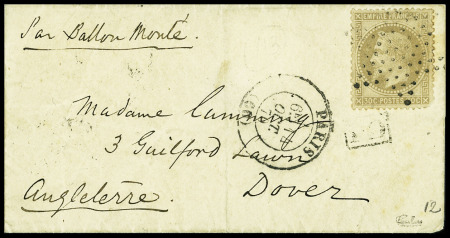 Par Ballon Monté.
EMPIRE FRANÇAIS
30 C POSTES 30 C
PARIS
OCT.
(60)
Madame Cumming
3 Guilford Lawn
Dover
Angleterre
12